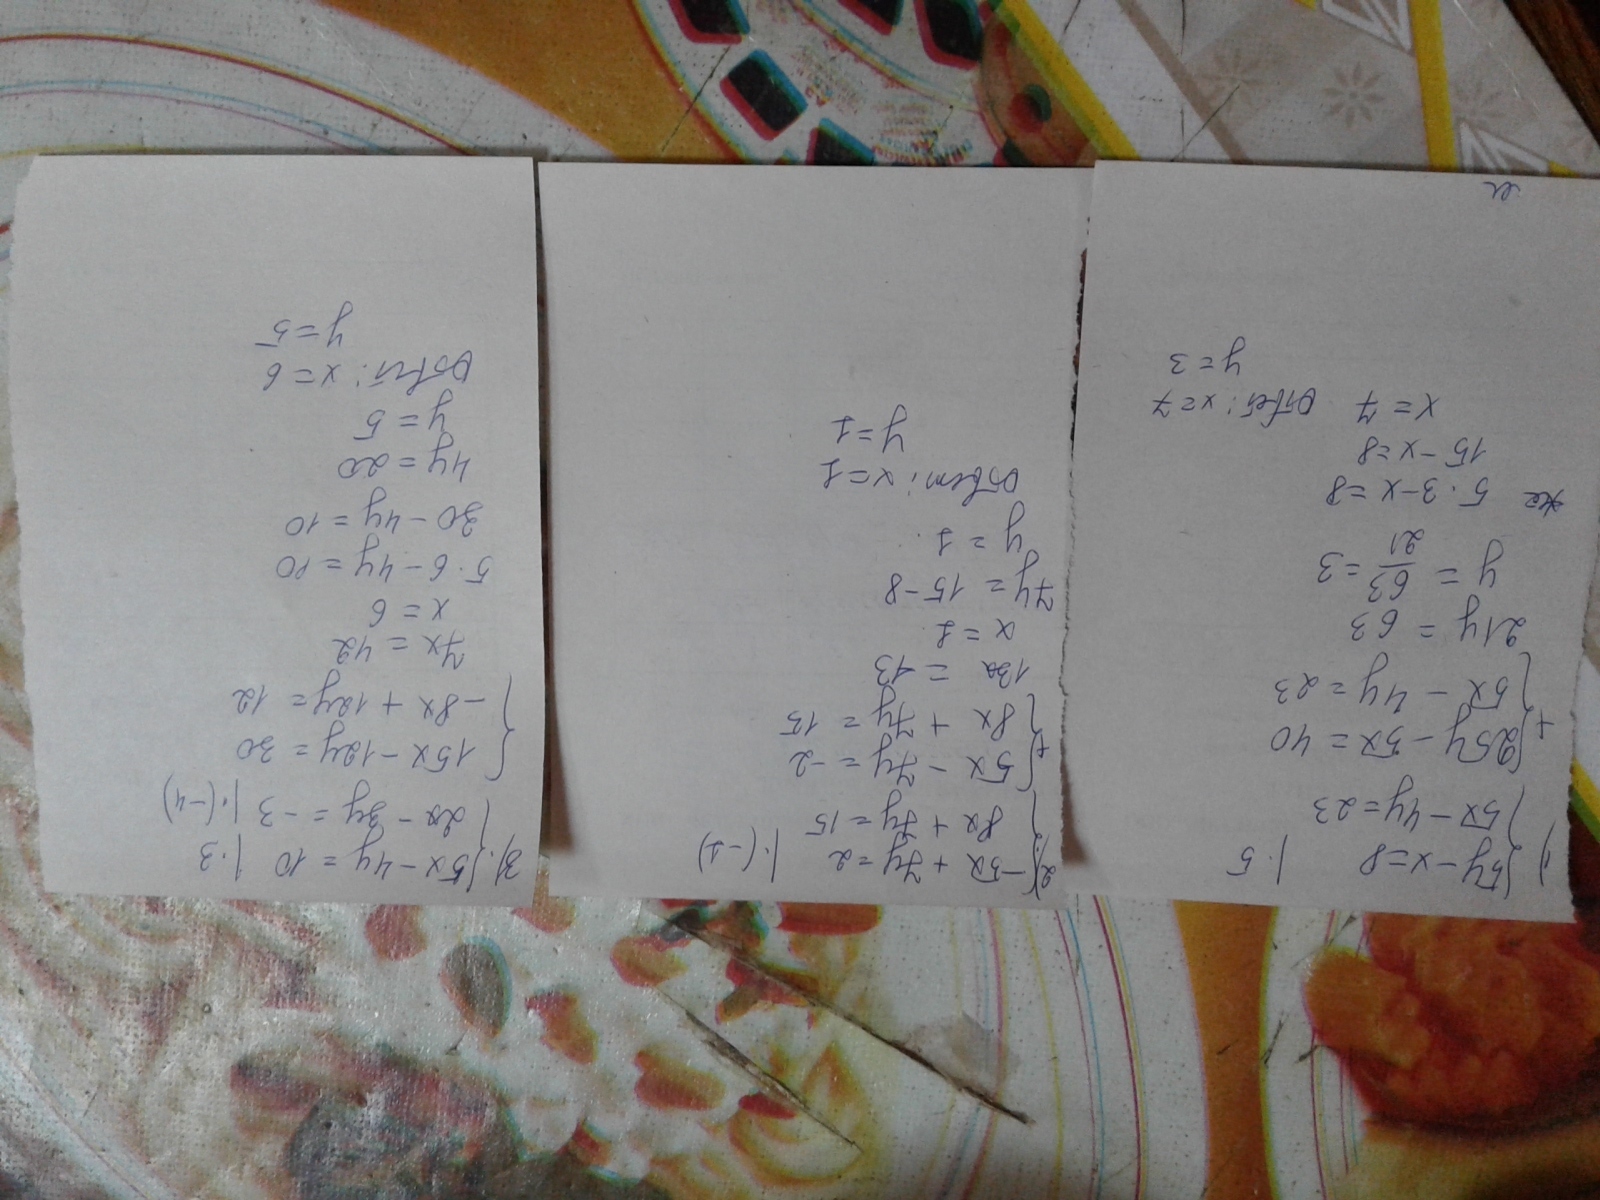 1) {5y - x = 8 | · 5
5x - 4y = 23
+ {25y - 5x = 40
5x - 4y = 23
21y = 63
y = 63/21 = 3
5 · 3 - x = 8
15 - x = 8
x = 7 Ответ: x = 7
y = 3
2) {-5x + 7y = 2 | · (-1)
8x + 7y = 15
+ {5x - 7y = -2
8x + 7y = 15
13x = 13
x = 1
7y = 15 - 8
y = 1
Ответ: x = 1
y = 1
3) {5x - 4y = 10 | · 3
2x - 3y = -3 | · (-4)
{15x - 12y = 30
-8x + 12y = 12
7x = 42
x = 6
5 · 6 - 4y = 10
30 - 4y = 10
4y = 20
y = 5
Ответ: x = 6
y = 5